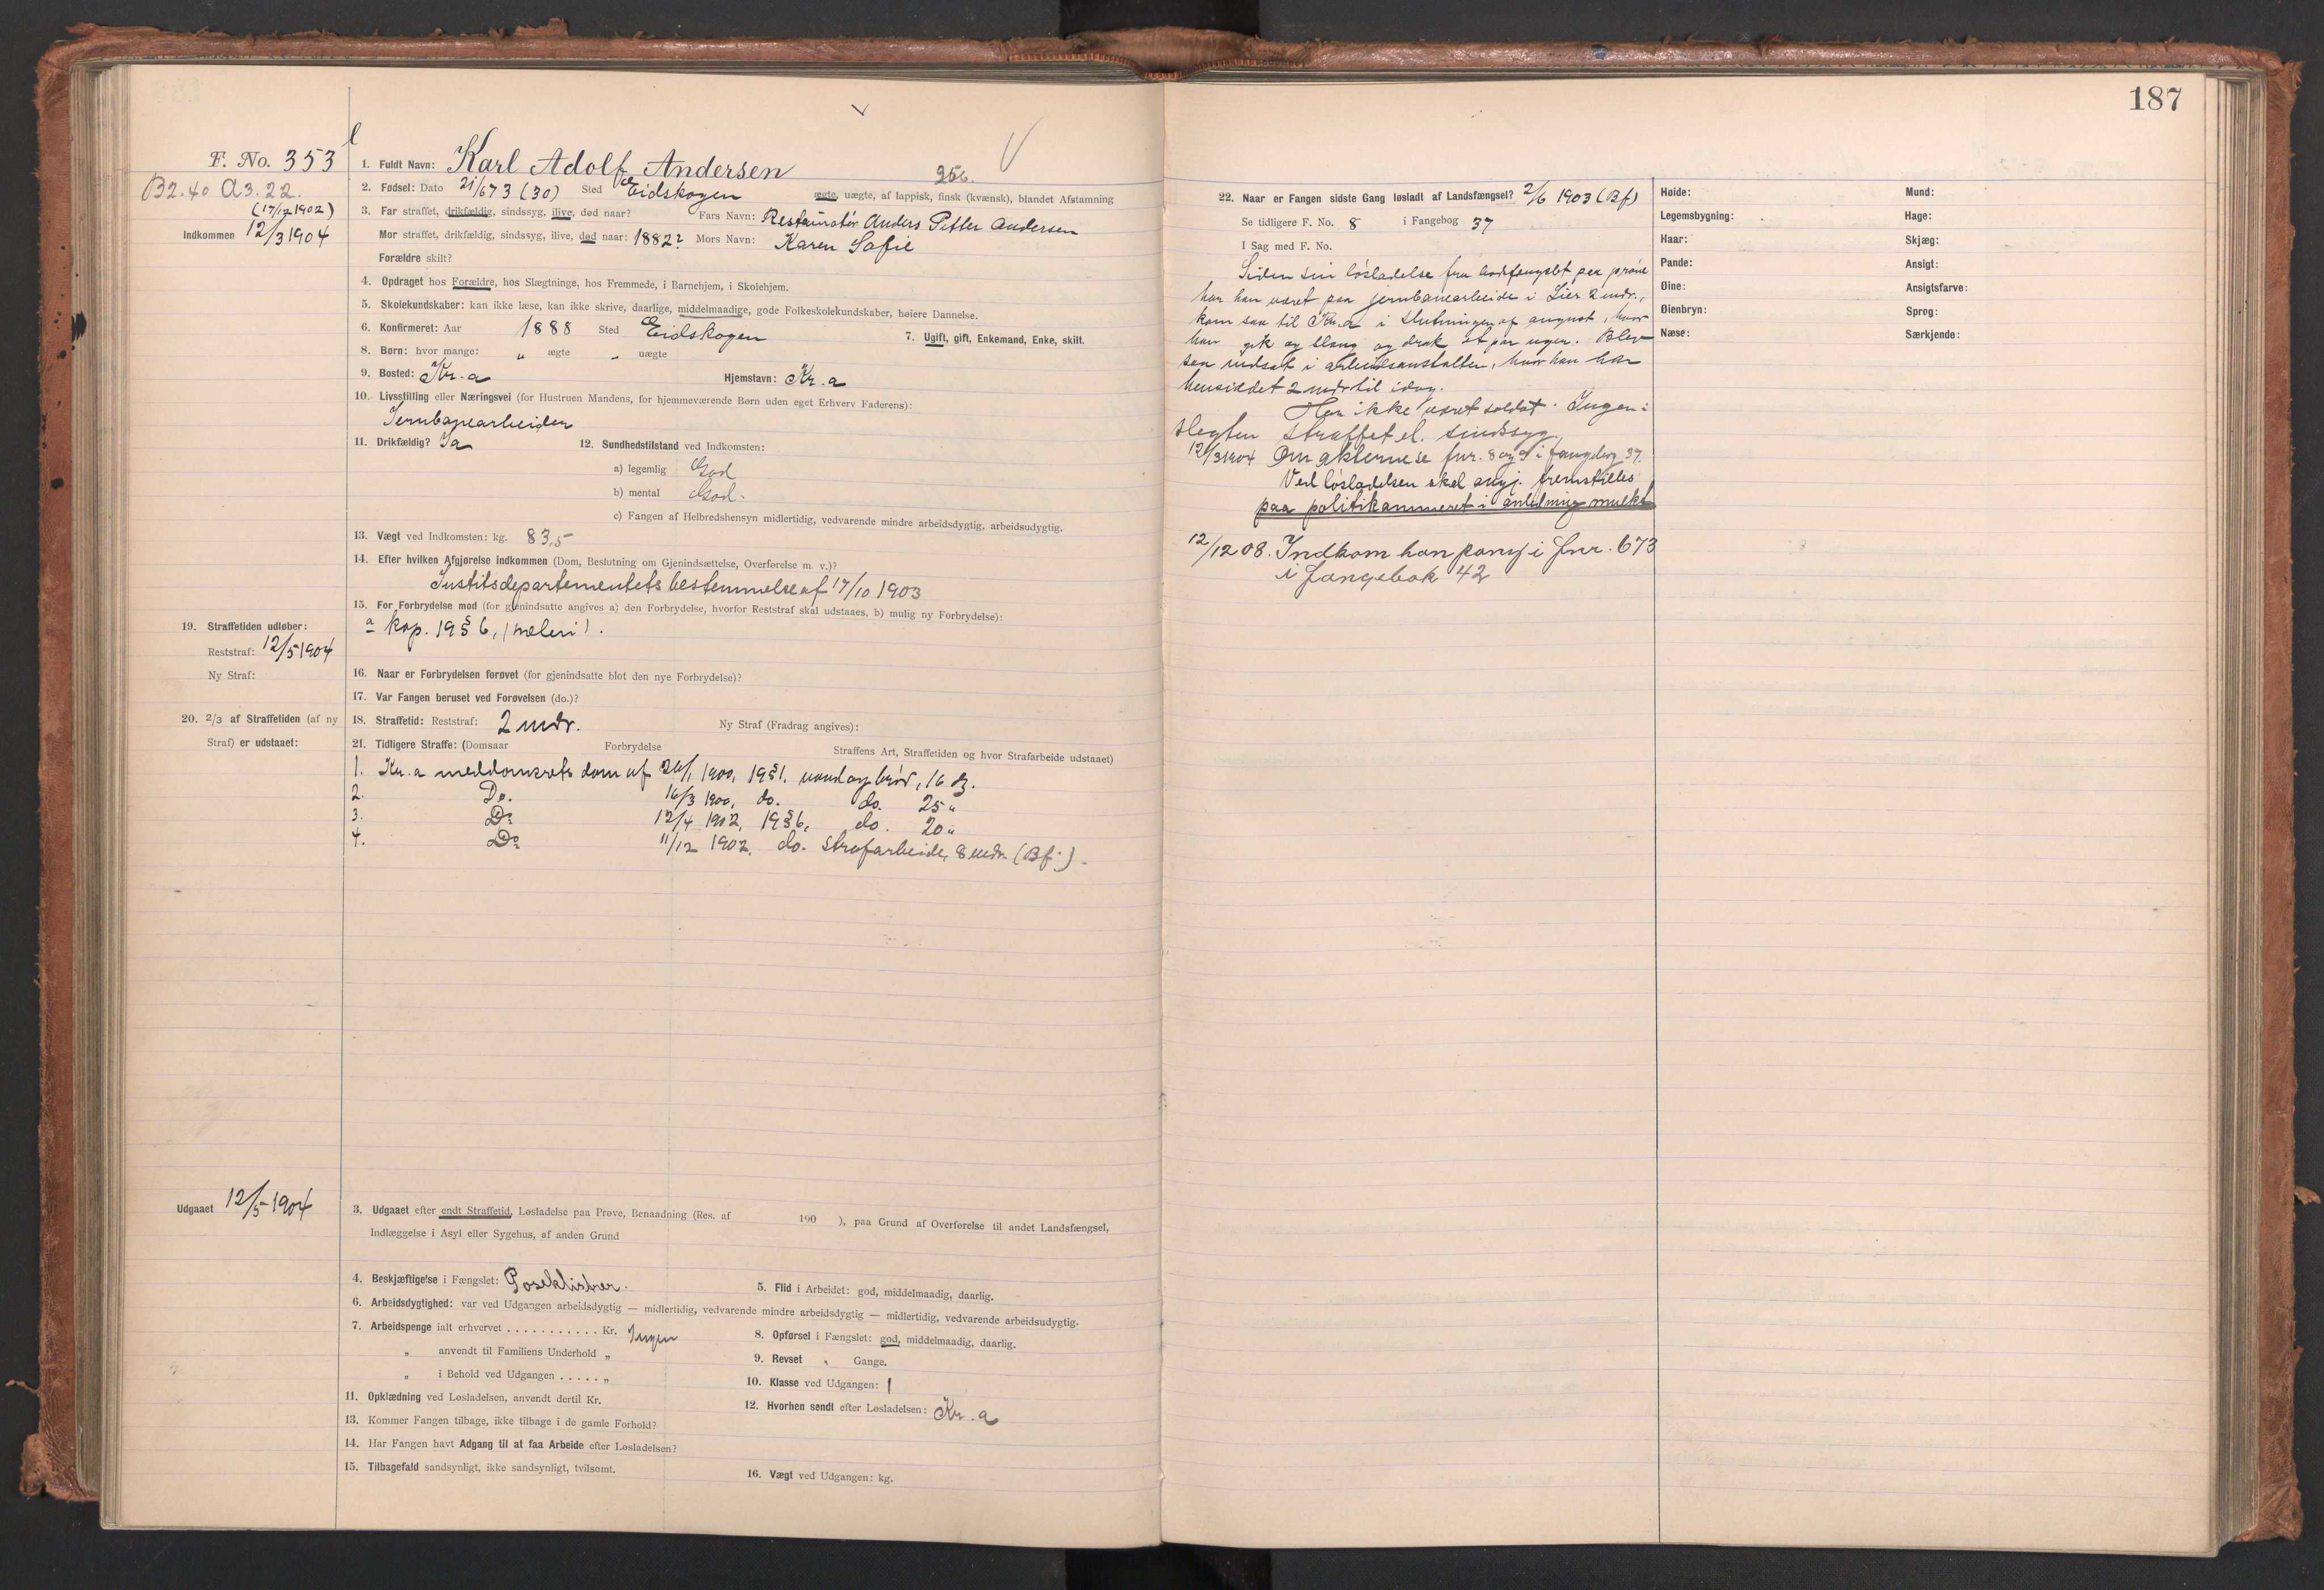 187
F. No. 353
B2.40 A3.22.
(17/12 1902)
Indkommen 12/3 1904
1. Fuldt Navn: Karl Adolf Andersen
256.
2. Fødsel: Dato 21/6 73 (30) Sted Eidskogen ægte, uægte, af lappisk, finsk (kvænsk), blandet Afstamning
3. Far straffet, drikfældig, sindssyg, ilive, død naar? Fars Navn: Restauratør Anders Petter Andersen
Mor straffet, drikfældig, sindssyg, ilive, død naar: 1882? Mors Navn: Karen Sofie
Forældre skilt?
4. Opdraget hos Forældre, hos Slægtninge, hos Fremmede, i Barnehjem, i Skolehjem.
5. Skolekundskaber: kan ikke læse, kan ikke skrive, daarlige, middelmaadige, gode Folkeskolekundskaber, høiere Dannelse.
6. Konfirmeret: Aar 1888 Sted Eidskogen 7. Ugift, gift, Enkemand, Enke, skilt.
8. Børn: hvor mange: " ægte " uægte
9. Bosted: Kr.a Hjemstavn: Kr.a
10. Livsstilling eller Næringsvei (for Hustruen Mandens, for hjemmeværende Børn uden eget Erhverv Faderens):
Jernbanearbeider
11. Drikfældig? Ja 12. Sundhedstilstand ved Indkomsten:
a) legemlig God
b) mental God.
c) Fangen af Helbredshensyn midlertidig, vedvarende mindre arbeidsdygtig, arbeidsudygtig.
13. Vægt ved Indkomsten: kg. 83,5
14. Efter hvilken Afgjørelse indkommen (Dom, Beslutning om Gjenindsættelse, Overførelse m. v.)?
Justitsdepartementets bestemmelse af 17/10 1903
15. For Forbrydelse mod (for gjenindsatte angives a) den Forbrydelse, hvorfor Reststraf skal udstaaes, b) mulig ny Forbrydelse):
a kap. 19 § 6, (hæleri).
19. Straffetiden udløber:
Reststraf: 12/5 1904
Ny Straf:
16. Naar er Forbrydelsen forøvet (for gjenindsatte blot den nye Forbrydelse)?
17. Var Fangen beruset ved Forøvelsen (do.)?
20. 2/3 af Straffetiden (af ny
Straf) er udstaaet:
18. Straffetid: Reststraf: 2 mdr. Ny Straf (Fradrag angives):
21. Tidligere Straffe: (Domsaar Forbrydelse Straffens Art, Straffetiden og hvor Strafarbeide udstaaet)
1. Kr.a meddomsrets dom af 26/1 1900, 19§1. vand og brød, 16 dg.
2. Do. 16/3 1900, do. do. 25 "
3. Do 12/4 1902, 19§6, do. 20 "
4. Do 11/12 1902. do. strafarbeide, 8 mdr. (Bf.).
Udgaaet 12/5 1904
3. Udgaaet efter endt Straffetid, Løsladelse paa Prøve, Benaadning (Res. af 190 ), paa Grund af Overførelse til andet Landsfængsel,
Indlæggelse i Asyl eller Sygehus, af anden Grund
4. Beskjæftigelse i Fængslet: Poseklistrer. 5. Flid i Arbeidet: god, middelmaadig, daarlig.
6. Arbeidsdygtighed: var ved Udgangen arbeidsdygtig — midlertidig, vedvarende mindre arbeidsdygtig — midlertidig, vedvarende arbeidsudygtig.
7. Arbeidspenge ialt erhvervet . . . . . . . . . . . Kr. Ingen 8. Opførsel i Fængslet: god, middelmaadig, daarlig.
" anvendt til Familiens Underhold " 9. Revset " Gange.
" i Behold ved Udgangen . . . . . " 10. Klasse ved Udgangen: 1
11. Opklædning ved Løsladelsen, anvendt dertil Kr. 12. Hvorhen sendt efter Løsladelsen: Kr.a
13. Kommer Fangen tilbage, ikke tilbage i de gamle Forhold?
14. Har Fangen havt Adgang til at faa Arbeide efter Løsladelsen?
15. Tilbagefald sandsynligt, ikke sandsynligt, tvilsomt. 16. Vægt ved Udgangen: kg.
22. Naar er Fangen sidste Gang løsladt af Landsfængsel? 2/6 1903 (Bf)
Se tidligere F. No. 8 i Fangebog 37
I Sag med F. No.
Siden sin løsladelse fra bodsfængslet paa prøve
har han været paa jernbanearbeide i Lier 2 mdr.,
kom saa til Kr.a i slutningen af august, hvor
han gik og slang og drak et par uger. Blev
saa indsat i arbeidsanstalten, hvor han har
hensiddet 2 mdr til idag.
Har ikke været soldat. Ingen i
slegten straffet el. sindssyg.
12/3 1904 Om akterne se fnr. 8 og 9 i fangebog 37.
Ved løsladelsen skal angj. fremstilles
paa politikammeret i anledning mulkt
12/12 08. Indkom han paany i fnr. 673
i fangebok 42
Høide:
Legemsbygning:
Haar:
Pande:
Øine:
Øienbryn:
Næse:
Mund:
Hage:
Skjæg:
Ansigt:
Ansigtsfarve:
Sprog:
Særkjende: